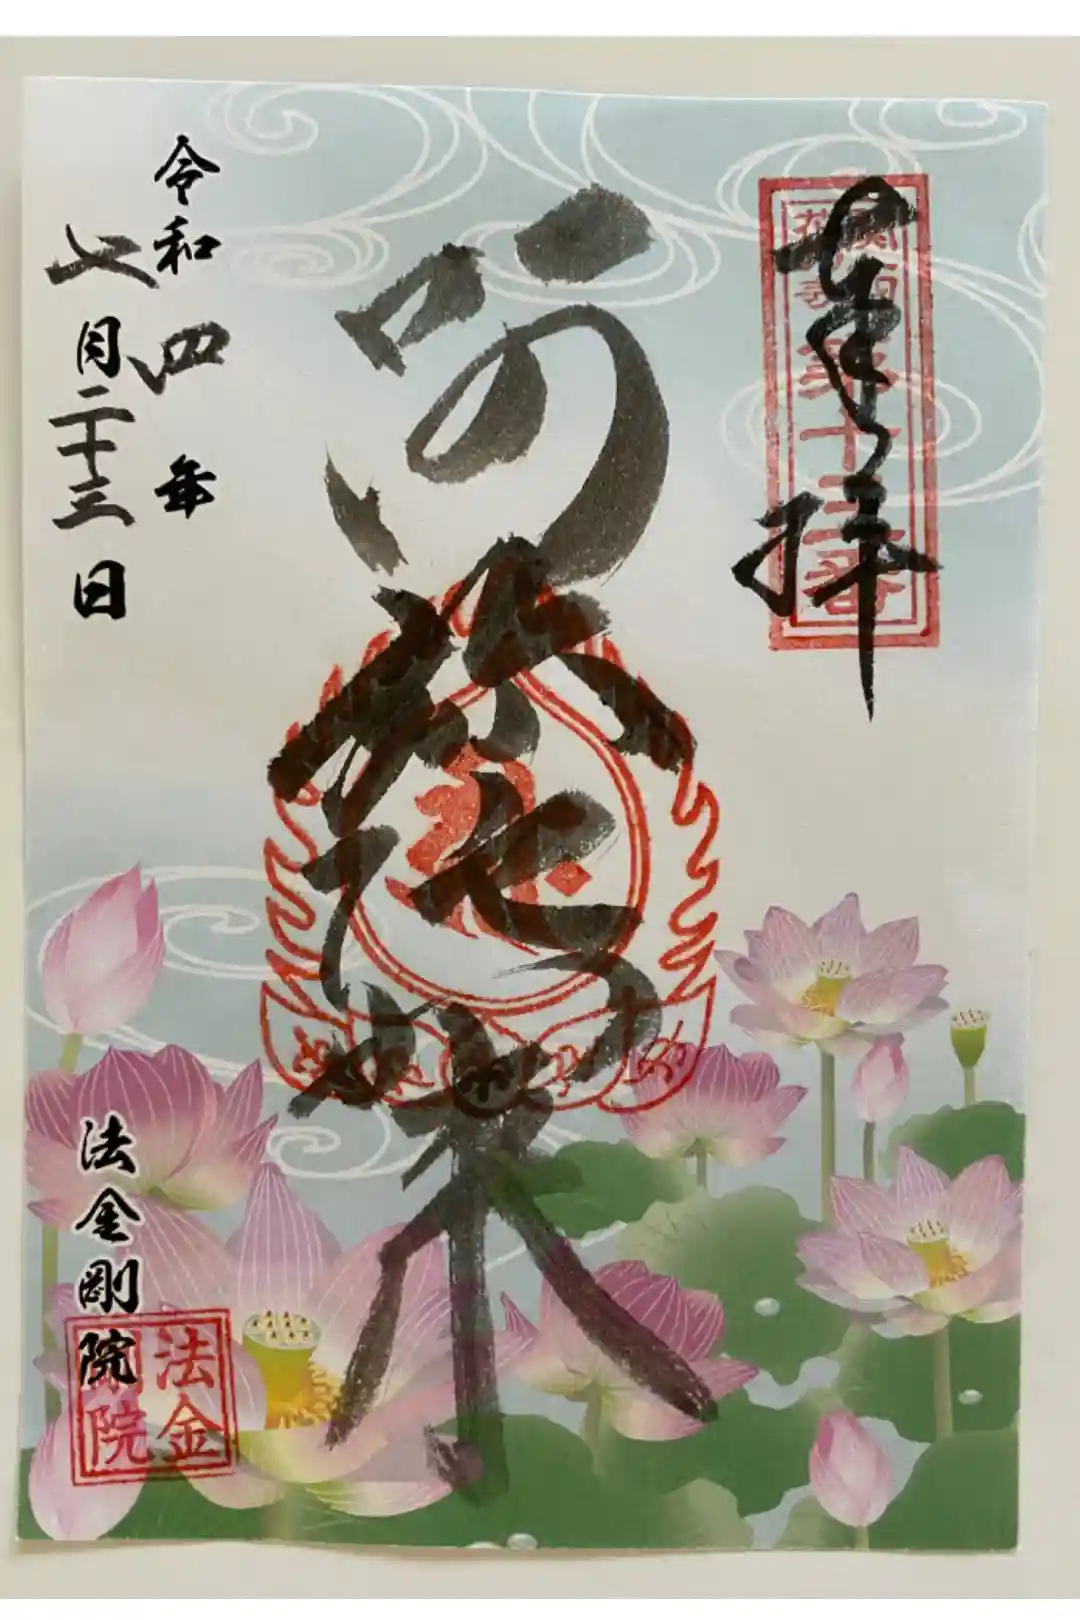 奉拝
関西
花の寺
第十三番
阿弥陀如来
令和四年
七月二十三日
法金剛院
法金
剛院